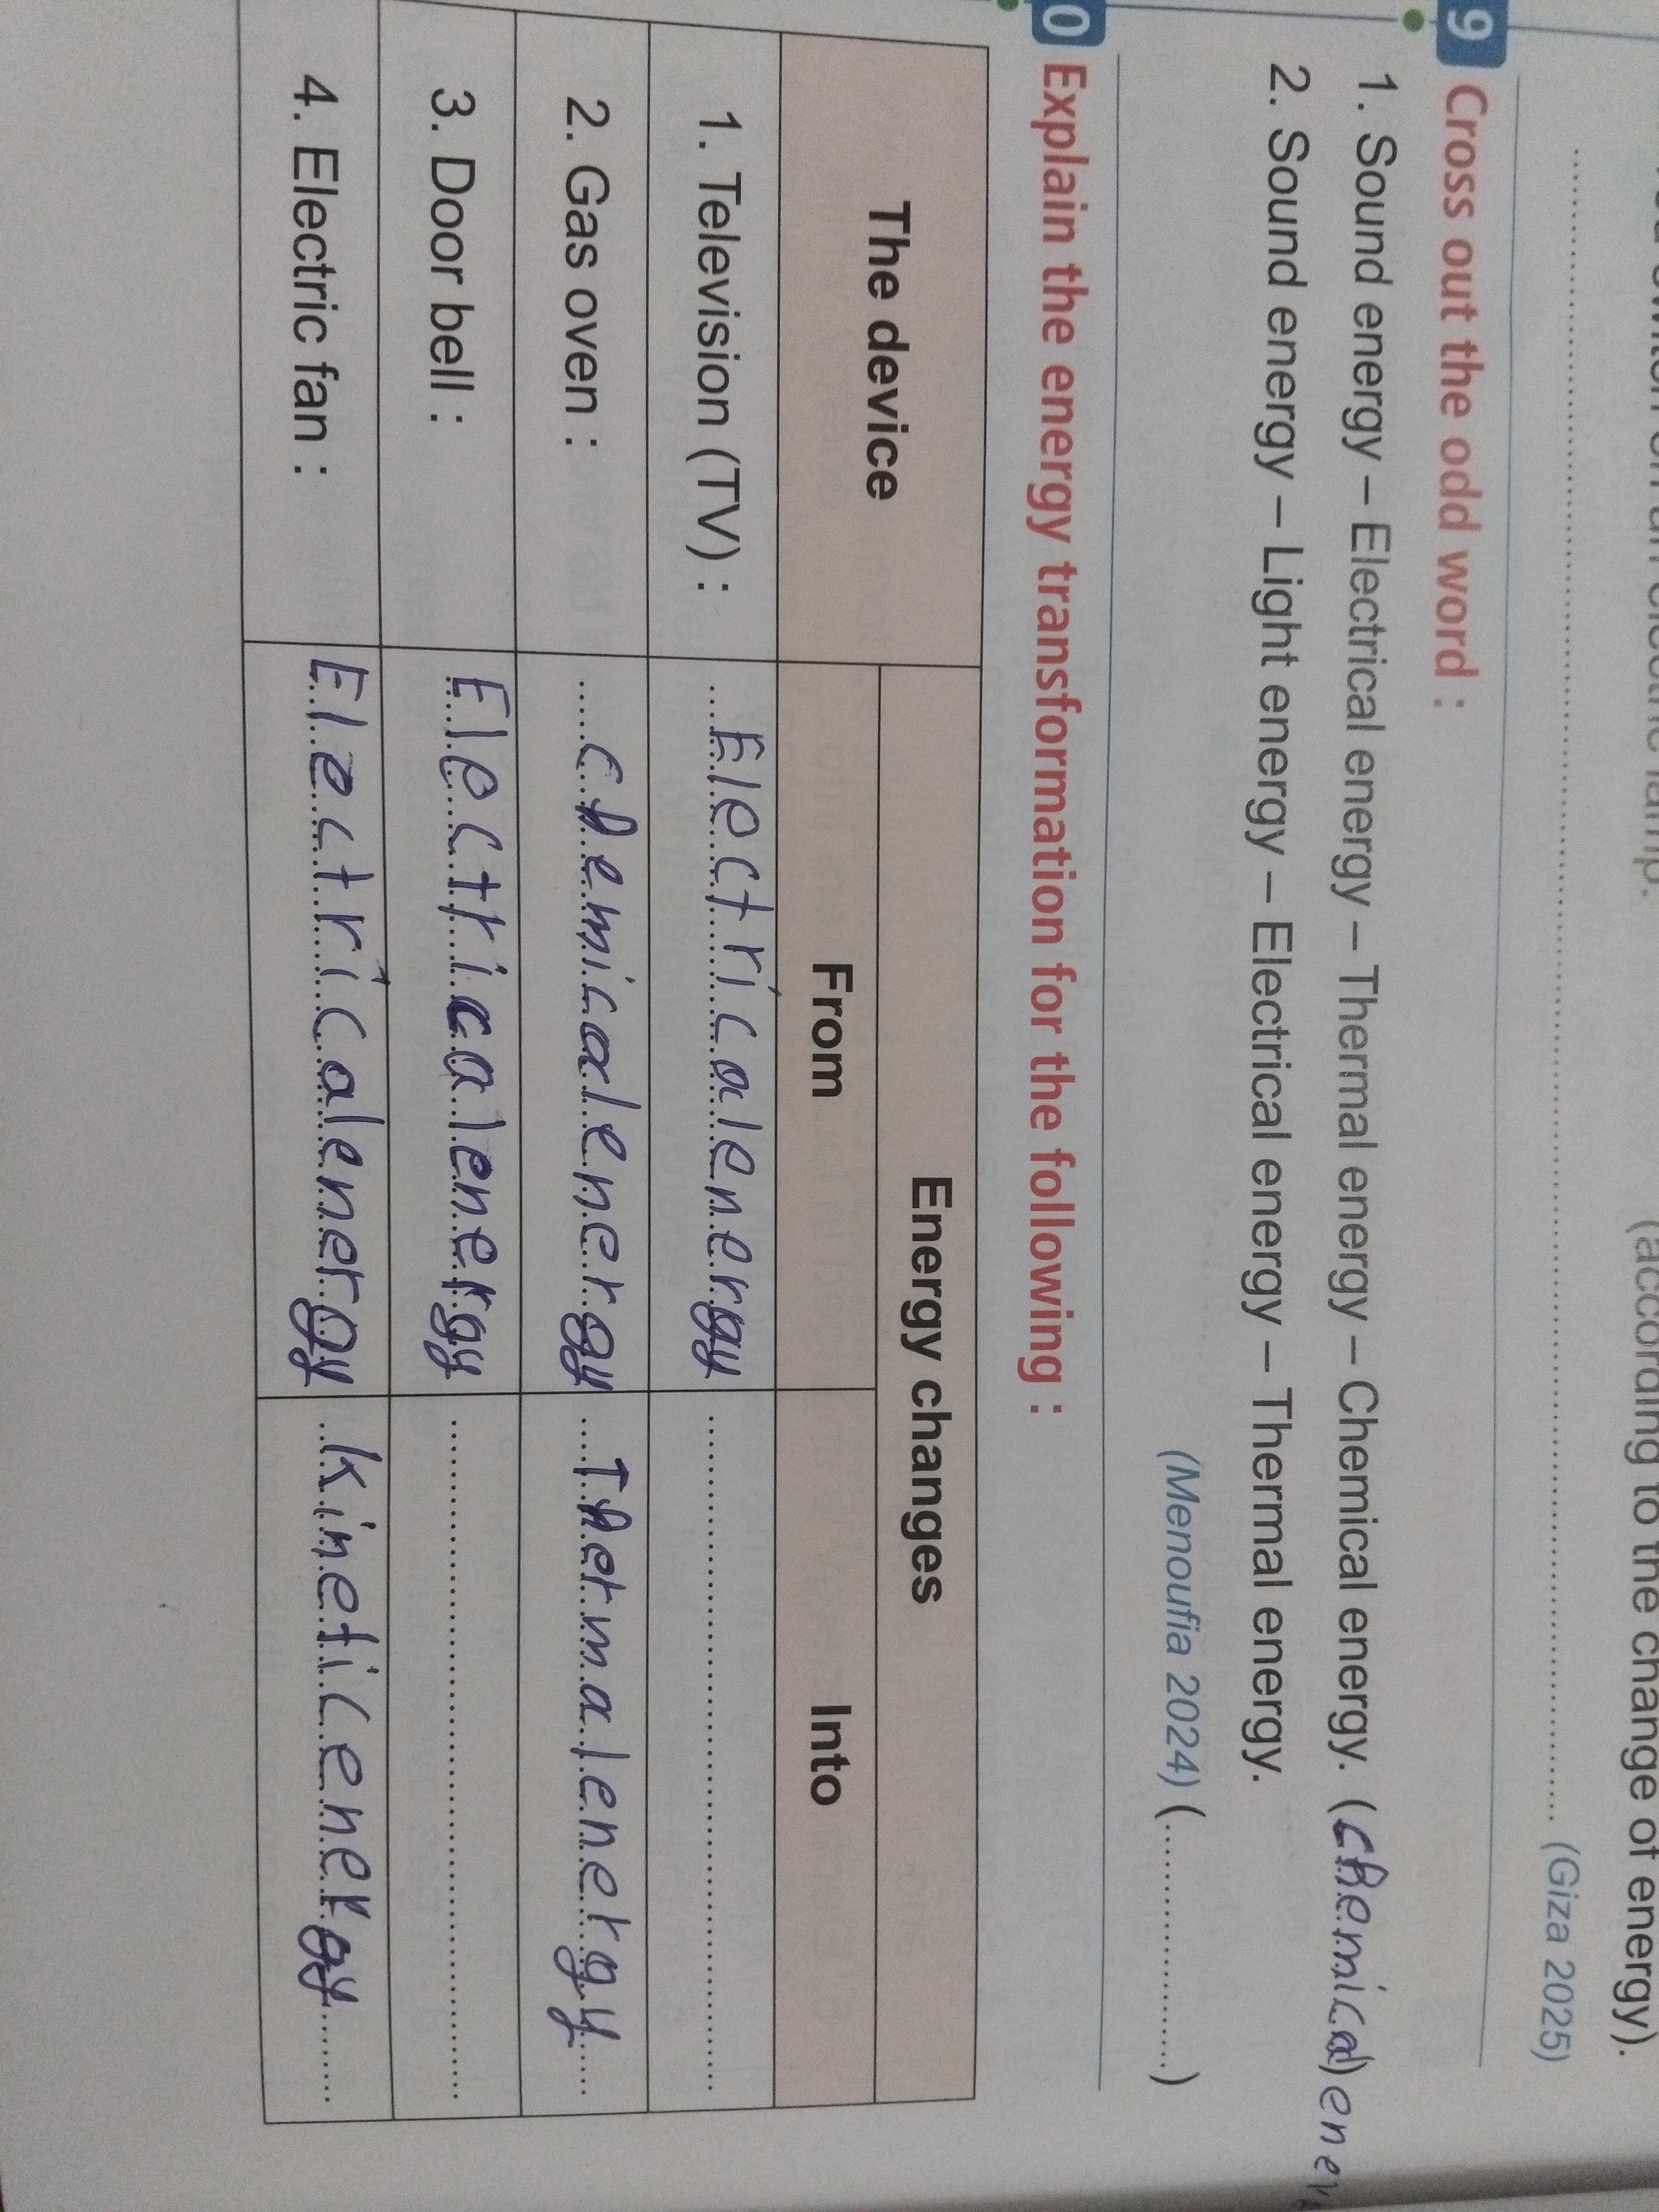 (according to the change of energy).
(Giza 2025)
9 Cross out the odd word :
1. Sound energy – Electrical energy – Thermal energy – Chemical energy. (chemical
2. Sound energy – Light energy – Electrical energy – Thermal energy.
(Menoufia 2024) (..............)
0 Explain the energy transformation for the following :
The device
Energy changes
From
Into
1. Television (TV) : Electrical energy
2. Gas oven : chemical energy Thermal energy
3. Door bell : Electrical energy
4. Electric fan : Electrical energy kinetic energy